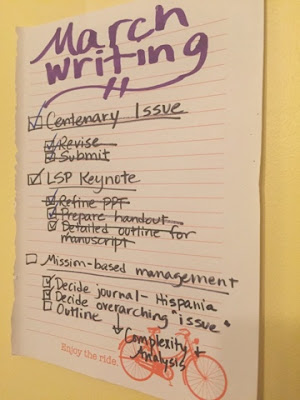 March
writing
Centenary Issue
Revise
Submit
LSP Keynote
Refine PPT
Prepare handout
Detailed outline for
manuscript
Missim-based management
Decide journal - Hispania
Decide overarching "issue"
Outline
Complexity +
Analysis
Enjoy the ride.